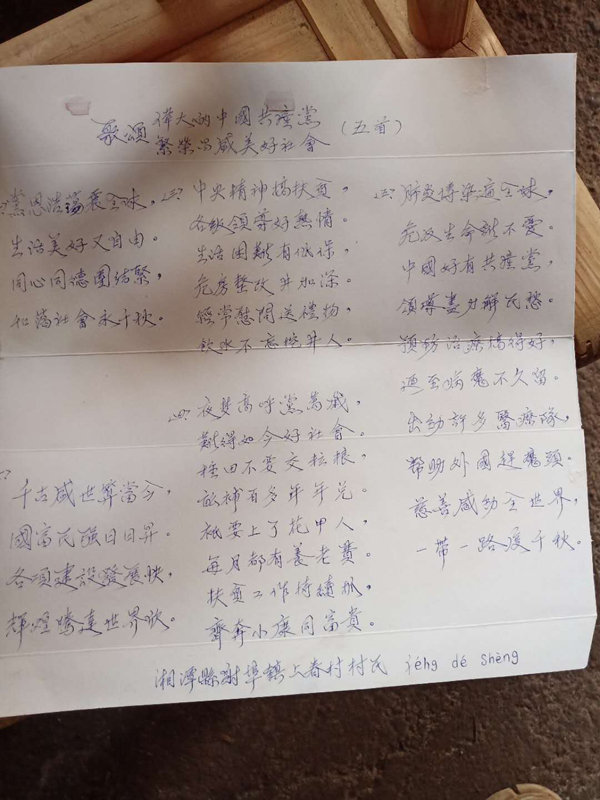 歌頌
偉大的中國共產黨
繁榮昌盛美好社會
(五首)
黨恩浩蕩震全球,
生活美好又自由。
同心同德團結緊,
和諧社會永千秋。
千古盛世算當今,
國富民強日日昇。
各項建設發展快,
輝煌騰達世界欽。
三、中央精神搞扶貧,
各級領導好熱情。
生活困難有低保,
危房整改并加深。
經常慰問送禮物,
飲水不忘挖井人。
四、夜梦高呼黨萬歲,
難得如今好社會。
種田不要交
畝補百多年年兌。
祗要上了花甲人,
每月都有養老費。
扶貧工作持續抓,
齊奔小康同富貴。
五、肺炎傳染遍全球,
危及生命誰不憂。
中國好有共產黨,
領導盡力解民愁。
預防治療搞得好,
至病魔不久留。
出動許多醫療隊,
幫助外國趕魔頭。
慈善感動全世界,
一帶一路度千秋。
湘潭縣射埠鎮上春村村民 iéng dé shèng